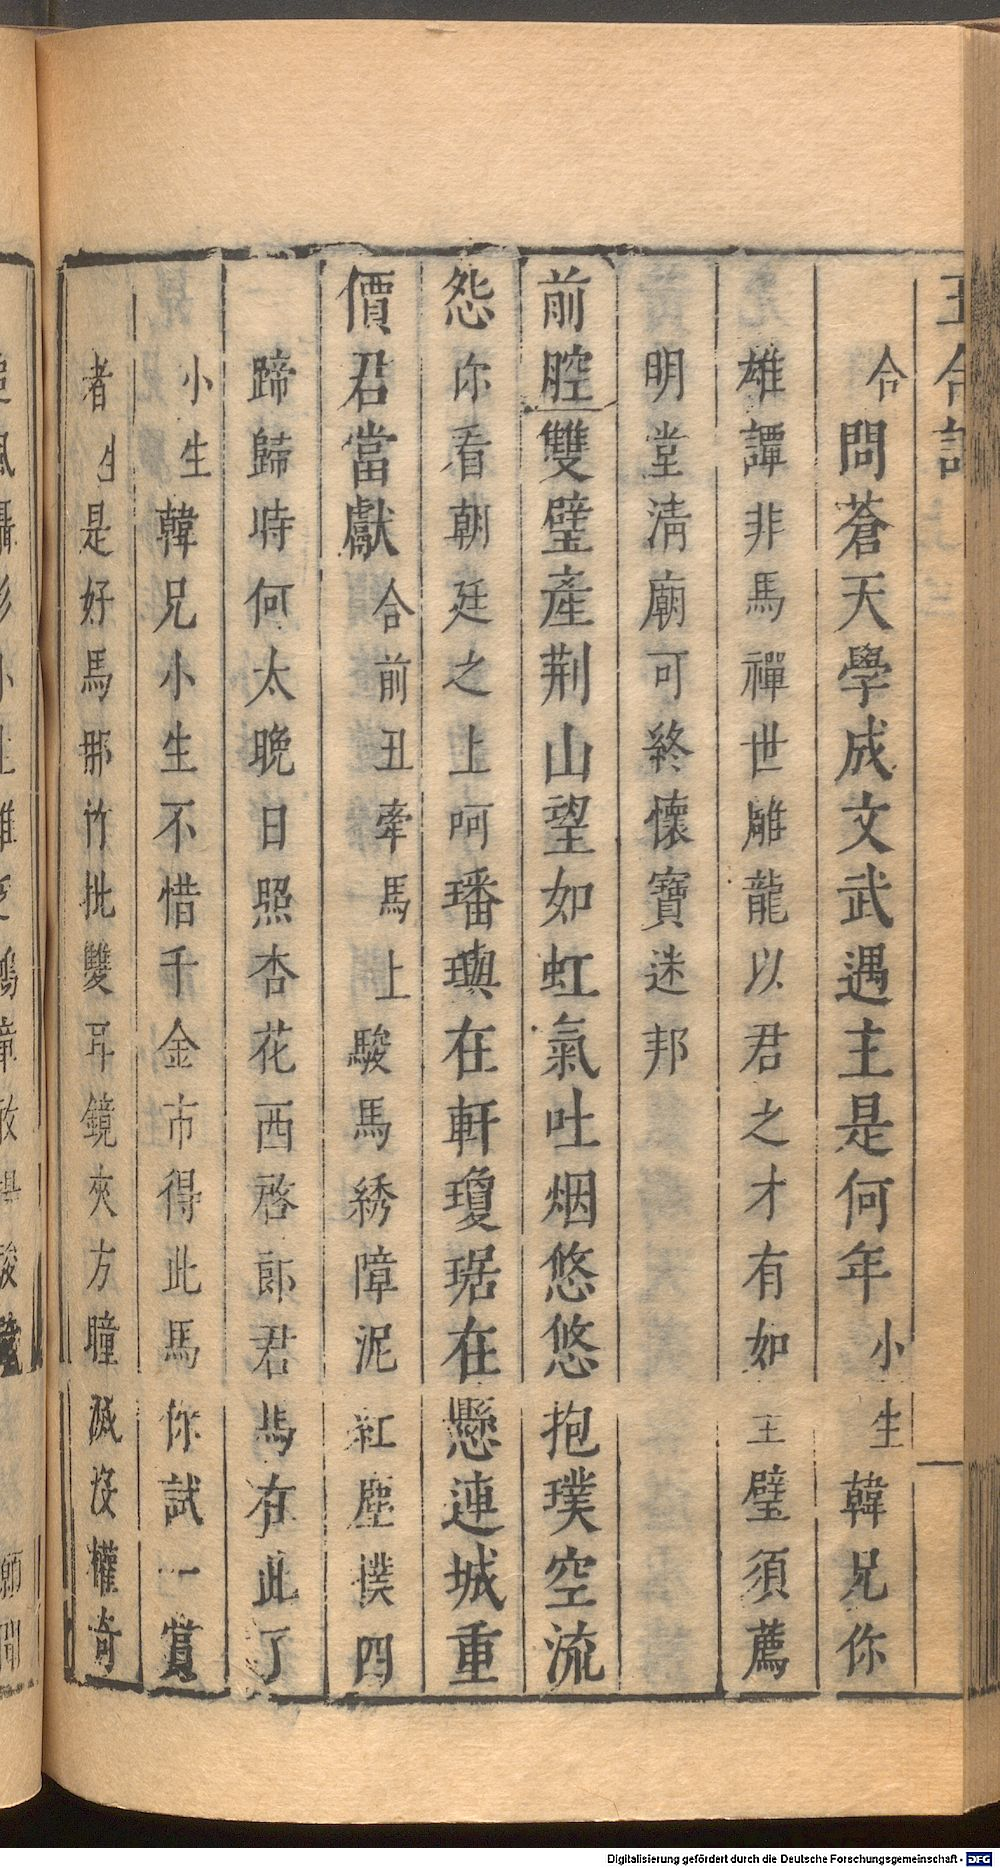 合問蒼天學成文武遇主是何年小生韓兄你
雄譚非馬禪世雕龍以君之才有如王璧須薦
明堂清廟可終懷寶迷邦
前腔雙璧產荆山望如虹氣吐烟悠悠抱璞空流
怨你看朝廷之上呵璠璵在軒瓊琚在懸連城重
價君當獻合前丑牽馬上駿馬綉障泥紅塵撲四
蹄歸時何太晚日照杏花西啓郎君馬在此了
小生韓兄小生不惜千金市得此馬你試一賞
者生是好馬那竹批雙耳鏡夾方瞳滅沒權奇
Digitalisierung gefördert durch die Deutsche Forschungsgemeinschaft - DFG